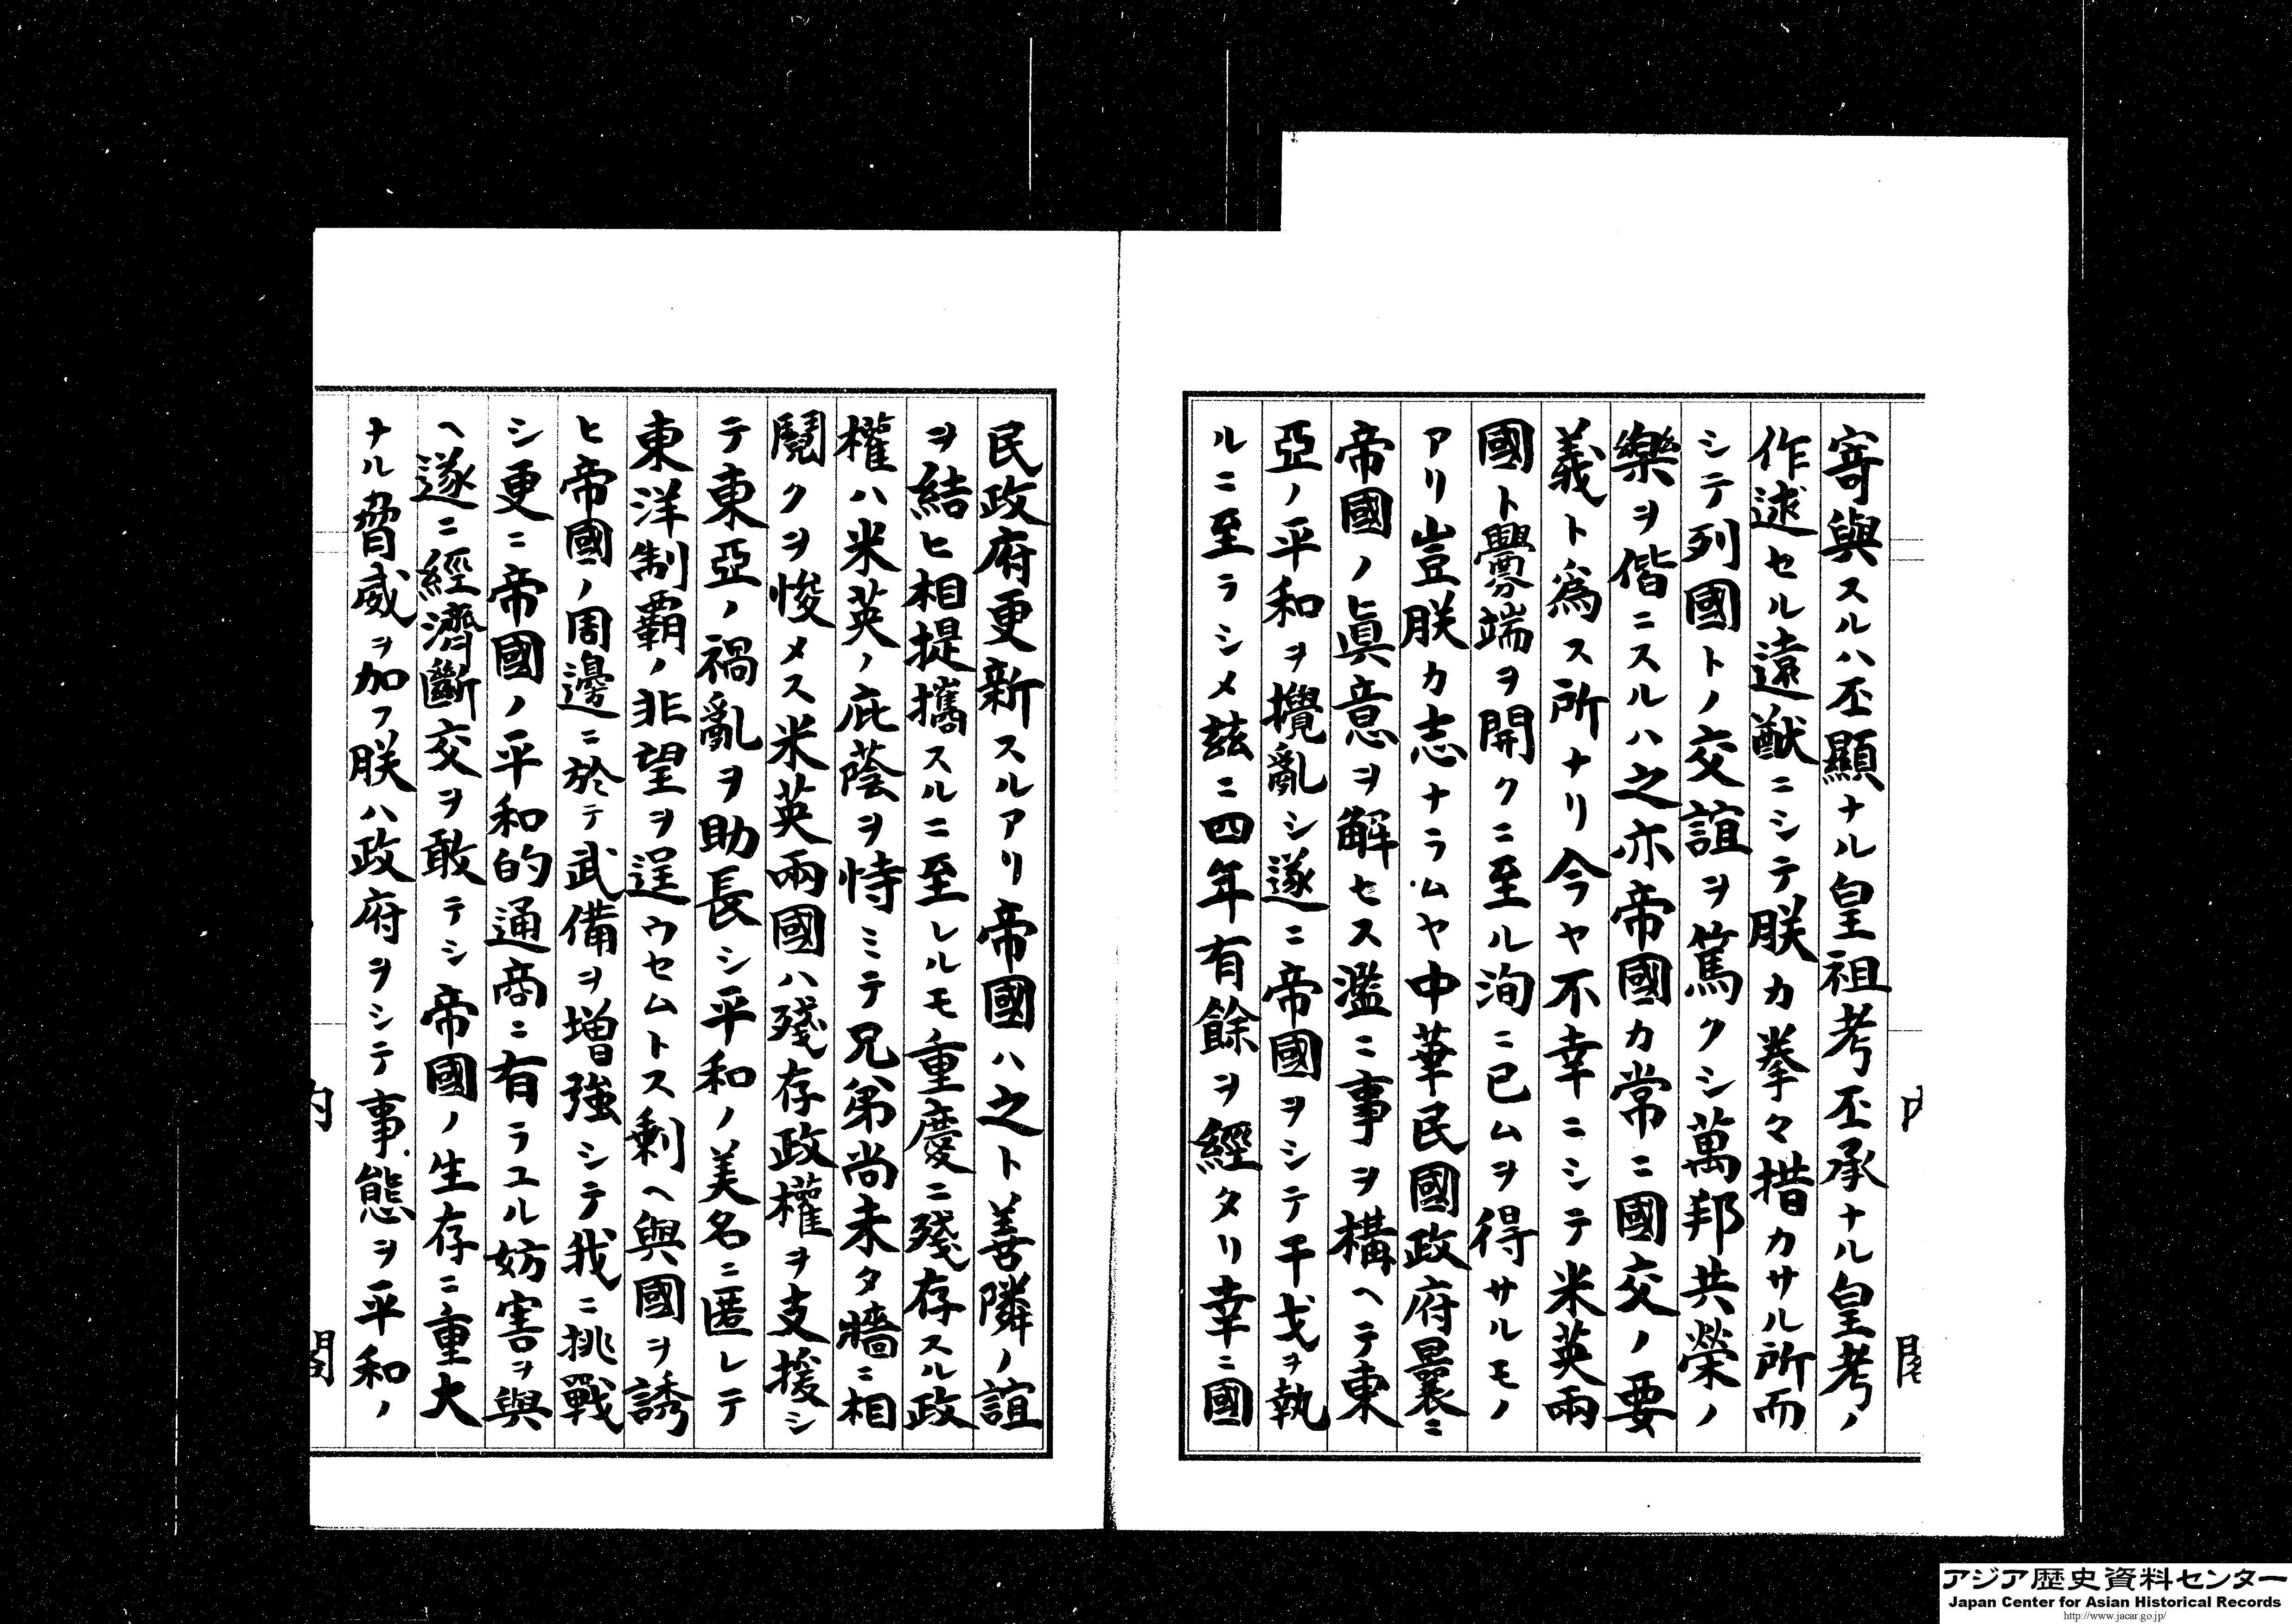 寄與スルハ丕顯ナル皇祖考丕承ナル皇考ノ
作述セル遠猷ニシテ朕カ拳々措カサル所而
シテ列國トノ交誼ヲ篤クシ萬邦共榮ノ
樂ヲ偕ニスルハ之亦帝國カ常ニ國交ノ要
義ト爲ス所ナリ今ヤ不幸ニシテ米英兩
國ト釁端ヲ開クニ至ル洵ニ已ムヲ得サルモノ
アリ豈朕カ志ナラムヤ中華民國政府曩ニ
帝國ノ眞意ヲ解セス濫ニ事ヲ構ヘテ東
亞ノ平和ヲ攪亂シ遂ニ帝國ヲシテ干戈ヲ執
ルニ至ラシメ茲ニ四年有餘ヲ經タリ幸ニ國
民政府更新スルアリ帝國ハ之ト善隣ノ誼
ヲ結ヒ相提攜スルニ至レルモ重慶ニ殘存スル政
權ハ米英ノ庇蔭ヲ恃ミテ兄弟尚未タ牆ニ相
鬩クヲ悛メス米英兩國ハ殘存政權ヲ支援シ
テ東亞ノ禍亂ヲ助長シ平和ノ美名ニ匿レテ
東洋制覇ノ非望ヲ逞ウセムトス剩ヘ與國ヲ誘
ヒ帝國ノ周邊ニ於テ武備ヲ增強シテ我ニ挑戰
シ更ニ帝國ノ平和的通商ニ有ラユル妨害ヲ與
ヘ遂ニ經濟斷交ヲ敢テシ帝國ノ生存ニ重大
ナル脅威ヲ加フ朕ハ政府ヲシテ事態ヲ平和ノ
内閣
アジア歴史資料センター
Japan Center for Asian Historical Records
http://www.jacar.go.jp/